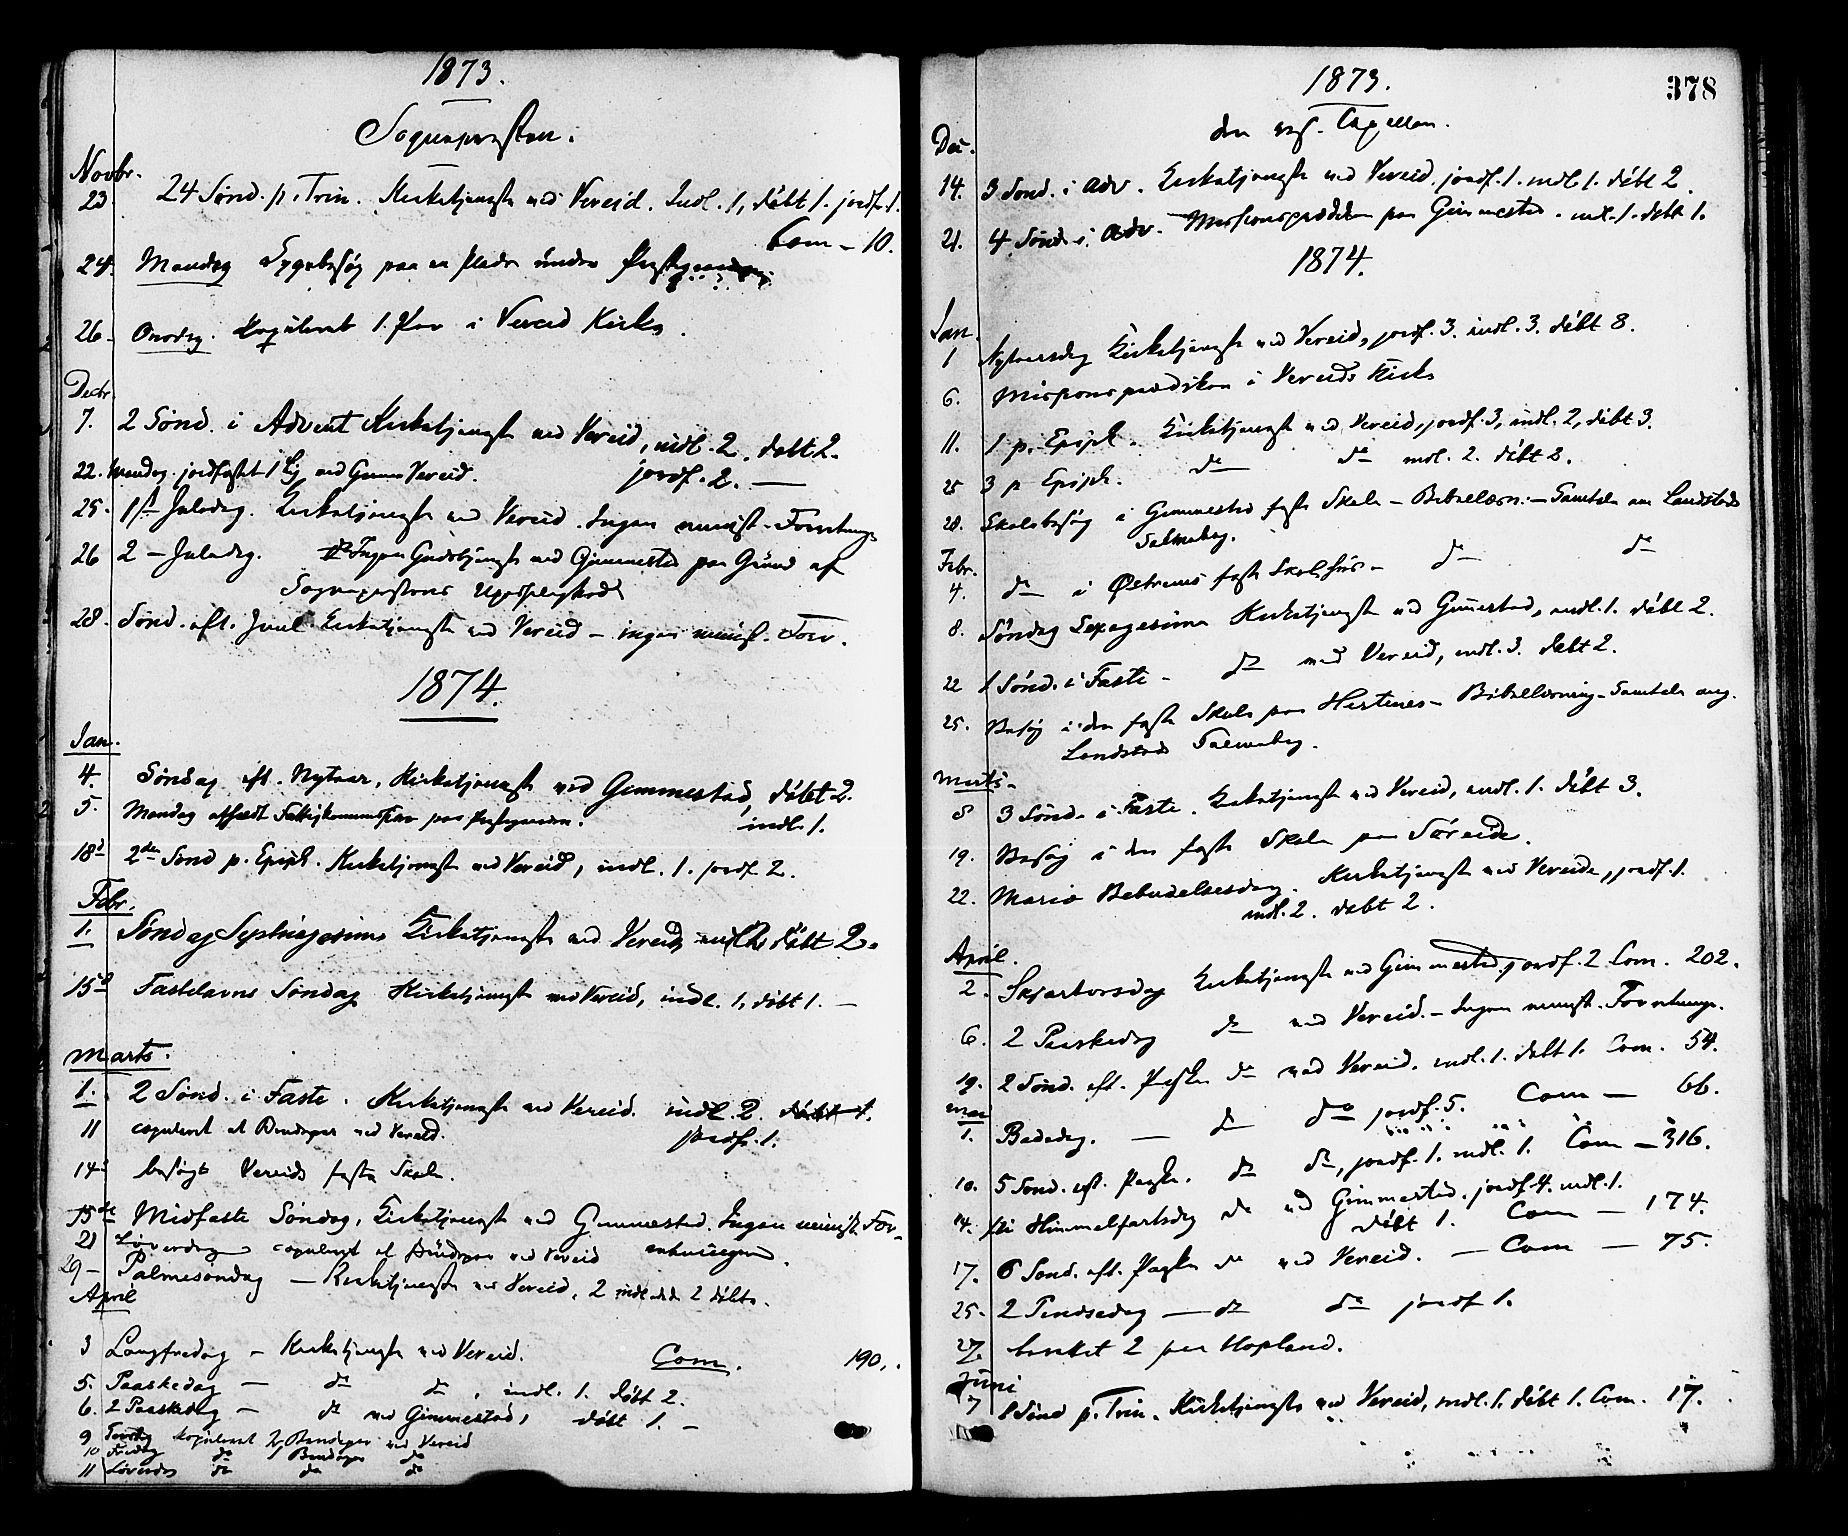 1873.
Sognepræsten.
Novbr.
23 24 Sønd. p. Trin. Kirketjeneste ved Vereid. Indl. 1, døbt 1. jordf. 1.
Com - 10.
24. Mandag Sygebesøg paa en Plads under Præstegaarden
26. Onsdag. Copuleret 1. Par i Vereid Kirke.
Decbr.
7. 2 Sønd. i Advent Kirketjeneste ved Vereid, indl. 2. døbt 2.
jordf. 2. —
22. Mandag. jordfæstet 1 Lig ved Vereid.
25. 1ste Juledag. Kirketjeneste ved Vereid. Ingen minist. Forretning.
26 2 - Juledag. Ingen Gudstjeneste ved Gimmestad paa Grund af
Sognepræstens Upasselighed
28. Sønd. eft. Juul. Kirketjeneste ved Vereid - ingen minist. Forr.
1874.
Jan.
4. Søndag eft. Nytaar, Kirketjeneste ved Gimmestad, døbt 2.
indl. 1.
5. Mandag afholdt Fattigkommission paa Præstegaarden.
18d 2den Sønd p. Epiph. Kirketjeneste ved Vereid, indl. 1. jordf 2.
Febr.
1. Søndag Septuagesima Kirketjeneste ved Vereid, døbt 2.
15d Fastelavns Søndag Kirketjeneste ved Vereid, indl. 1, døbt 1. —
Marts.
1. 2 Sønd. i Faste. Kirketjeneste ved Vereid. indl. 2. døbt 1.
jordf. 1.
11 copuleret et Brudepar ved Vereid.
14d besøgt Vereids faste Skole.
15de Midfaste Søndag, Kirketjeneste ved Gimmestad. Ingen minist. For-
retninger.
21 Løverdag copuleret et Brudepar ved Vereid
29 - Palmesøndag — Kirketjeneste ved Vereid, 2 indledede 2 døbte.
April
3 Langfredag - Kirketjeneste ved Vereid. Com. 190.
5. Paaskedag — do do, indl. 1. døbt 2.
6. 2 Paaskedag — do ved Gimmestad, døbt 1. —
9 Torsdag kopuleret 2 Brudepar ved Vereid
10 Fredag do 1 Brudepar do
11 Løverdag do do do
378
1873.
den resf. Capellan.
Dec.
14. 3 Sønd. i Adv. Kirketjeneste ved Vereid. jordf. 1. indl. 1. døbt 2.
21. 4 Sønd. i Adv. Missionsprædiken paa Gimmestad. indl. 1. døbt 1.
1874.
Jan.
1 Nytaarsdag Kirketjeneste ved Vereid, jordf. 3. indl. 3. døbt 8.
6. Missionsprædiken i Vereids Kirke
11. 1 p. Epiph. Kirketjeneste ved Vereid, jordf. 3, indl. 2, døbt 3.
25 3 p Epiph. do do indl. 2. døbt 2.
28. Skolebesøg i Gimmestad faste Skole - Bibellæsn. - Samtale om Landstads
Salmebog.
Febr.
4. do i Østrems faste Skolehuus - do do
8. Søndag Sexagesima Kirketjeneste ved Gimmestad, indl. 1. døbt 2.
22 1 Sønd. i Faste - do ved Vereid, indl. 3. døbt 2.
25. Besøg i den faste Skole paa Hestenes - Bibellæsning - Samtale ang.
Landstads Salmebog.
Marts -
8 3 Sønd. i Faste. Kirketjeneste ved Vereid, indl. 1. døbt 3.
19. Besøg i den faste Skole paa Søreide.
22. Mariæ Bebudelsesdag. Kirketjeneste ved Vereide, jordf. 1.
indl. 2. døbt 2.
April.
2. Skjærtorsdag Kirketjeneste ved Gimmestad. jordf. 2 Com. 202.
6. 2 Paaskedag do ved Vereid. - Ingen minist. Forretninger.
19. 2 Sønd. eft. Paaske do ved Vereid. indl. 1. døbt 1. Com. 54.
Mai
1. Bededag. — do do jordf. 5. Com — 66.
10. 5 Sønd. eft. Paaske. do do, jordf. 1. indl. 1. Com — 316.
14. Xti Himmelfartsdag do ved Gimmestad. jordf. 4. indl. 1.
døbt 1. Com — 174.
17. 6 Sønd. eft. Paaske do ved Vereid. — Com — 75.
25. 2 Pindsedag — do do jordf 1.
27. besøgt 2 paa Hopland.
Juni
7 1 Sønd p. Trin. Kirketjeneste ved Vereid, indl. 1. døbt 1. Com. 17.